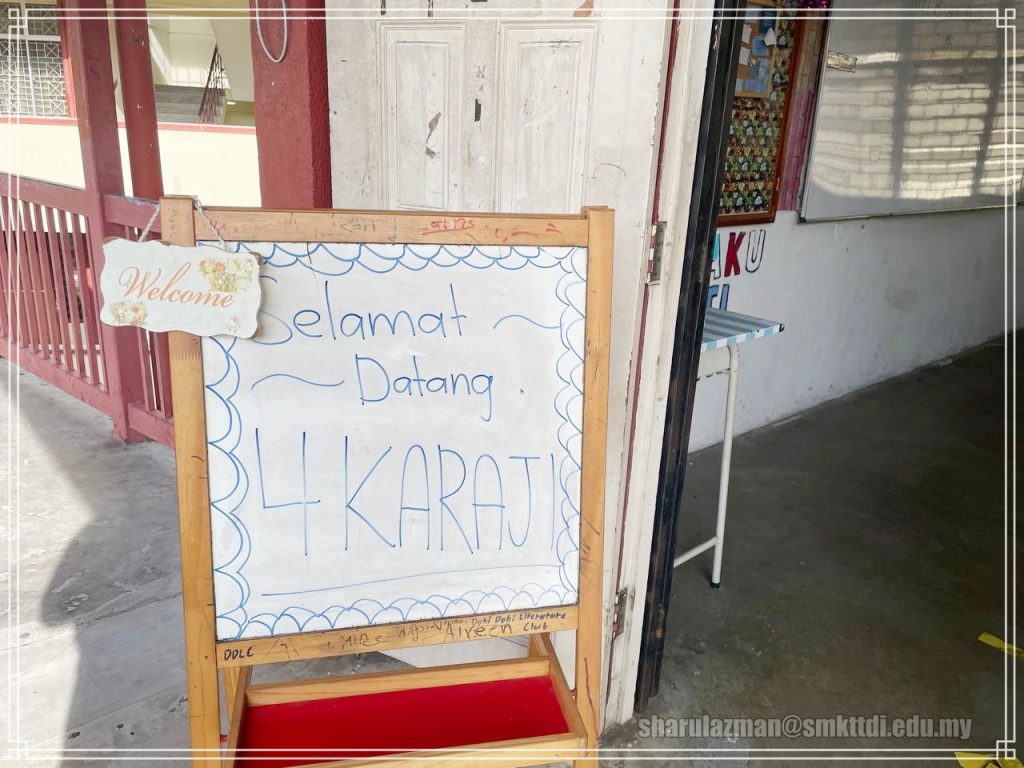 Welcome
Selamat
Datang
4 KARAJI
DDLC
Doki Doki Literature
Aireen Club
AKU
sharulazman@smkttdi.edu.my